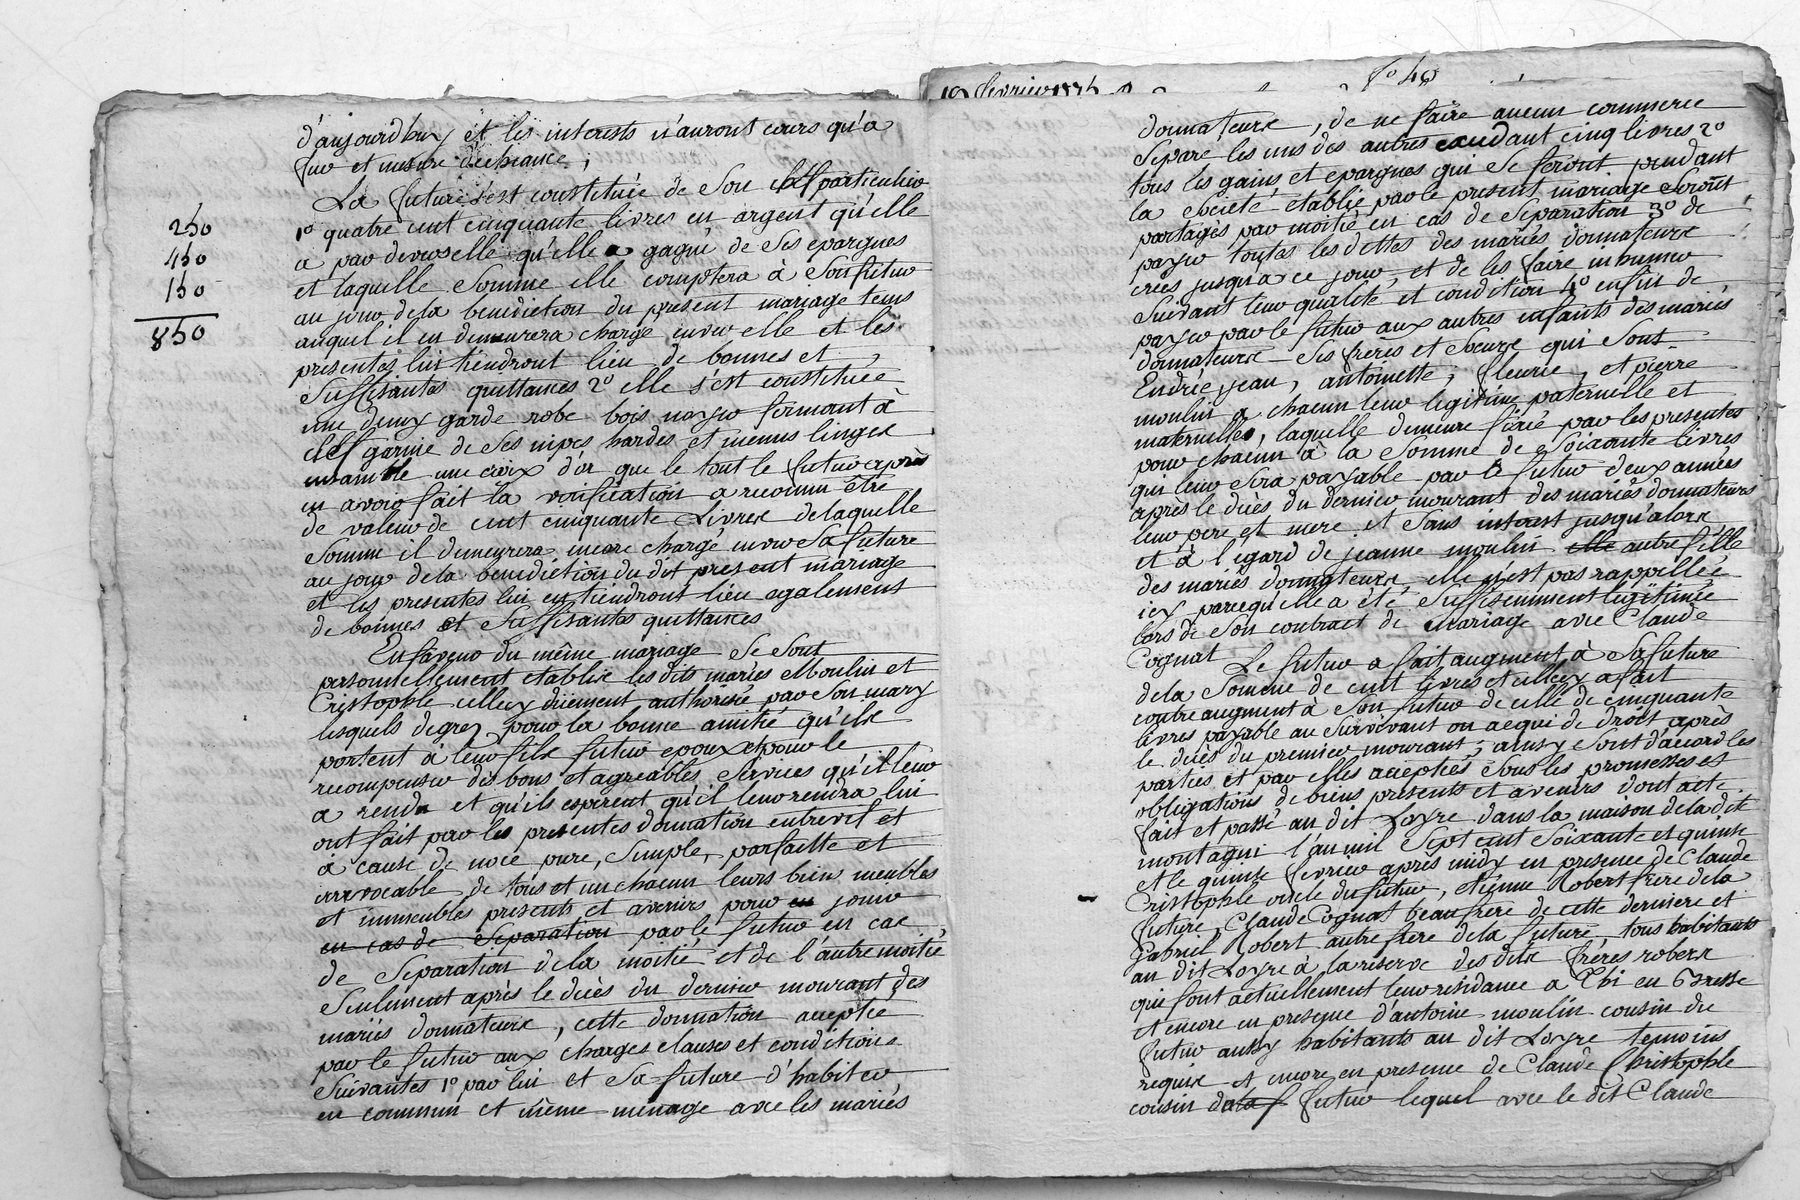 d'aujourd'huy et les interests n'auront cours qu'a
fur et mesure d'echeance,
La future s'est constituée de Son chef particulier
1º quatre cent cinquante livres en argent qu'elle
a par devers elle qu'elle a gagné de Ses epargnes
et laquelle Somme elle comptera à Son futur
au jour de la benediction du present mariage tems
auquel il en demeurera chargé envers elle et les
presentes lui tiendront lieu de bonnes et
Suffisantes quittances 2º elle s'est constituée
une deux garde robe bois noyer fermant à
clef garnie de Ses nipes hardes et menus linges
ensamble une croix d'or que le tout le futur après
en avoir fait la verification a reconnu être
de valeur de cent cinquante Livres de laquelle
Somme il demeurera encore chargé envers Sa future
au jour de la benediction du dit present mariage
et les presentes lui en tiendront lieu egalement
de bonnes et Suffisantes quittances
En faveur du même mariage Se Sont
personnellement etablis les dits mariés Moulin et
Cristophle icelle duement authorisée par Son mary
lesquels de gré pour la bonne amitié qu'ils
portent à leur fils futur epoux et pour le
recompenser des bons et agreables Services qu'il leur
a rendu et qu'ils esperent qu'il leur rendra lui
ont fait par les presentes donnation entrevif et
à cause de noce pure, Simple, parfaitte et
irrevocable de tous et un chacun leurs bien meubles
et immeubles presents et avenirs pour en jouir
en cas de Separation par le futur en cas
de Separation de la moitié et de l'autre moitié
Seulement après le decès du dernier mourant des
mariés donnateurs, cette donnation acceptée
par le futur aux charges clauses et conditions
Suivantes 1º par lui et Sa future d'habiter
en commun et même menage avec les mariés
250
450
150
850
19 fevrier 1775
fº 48
donnateurs, de ne faire aucun commerce
Separé les uns des autres excedant cinq livres 2º
tous les gains et epargnes qui Se feront pendant
la Societé etablie par le present mariage Seront
partagés par moitié en cas de Separation 3º de
payer toutes les dettes des mariés donnateurs
créés jusqu'a ce jour et de les faire inhumer
Suivant leur qualité et condition 4º enfin de
payer par le futur aux autres enfants des mariés
donnateurs Ses freres et Soeurs qui Sont
Endrée, jean, antoinette, fleurie, et pierre
moulin a chacun leur legitime paternelle et
maternelle, laquelle demeure fixée par les presentes
pour chacun à la Somme de Soixante livres
qui leur Sera payable par le futur deux années
après le decès du dernier mourant des mariés donnateurs
leur pere et mere et Sans interest jusqu'alors
et à l'egard de jeanne moulin elle autre fille
des mariés donnateurs elle n'est pas rappellée
icy parcequ'elle a été Suffisemment legitimée
lors de Son contract de mariage avec Claude
Cognat Le futur a fait augment à Sa future
de la Somme de cent livres et icelle a fait
contre augment à Son futur de celle de cinquante
livres payable au Survivant ou acqui de droit après
le decès du premier mourant; ainsy Sont d'accord les
parties et par elles acceptées Sous les promesses et
obligations de biens presents et avenirs dont acte
fait et passé au dit Loyre dans la maison de la dite
montagni l'an mil Sept cent Soixante et quinse
et le quinse fevrier après midy en presence de Claude
Cristophle oncle du futur, etienne Robert frere de la
future, Claude Cognat beau frere de cette derniere et
Gabriel Robert autre frere de la future tous habitants
au dit Loyre à la reserve des dits fréres robers
qui font actuellement leur residance a en Bresse
et encore en presence d'antoine moulin cousin du
futur aussy habitants au dit Loyre temoins
requis et encore en presence de Claude Christophle
cousin futur lequel avec le dit Claude